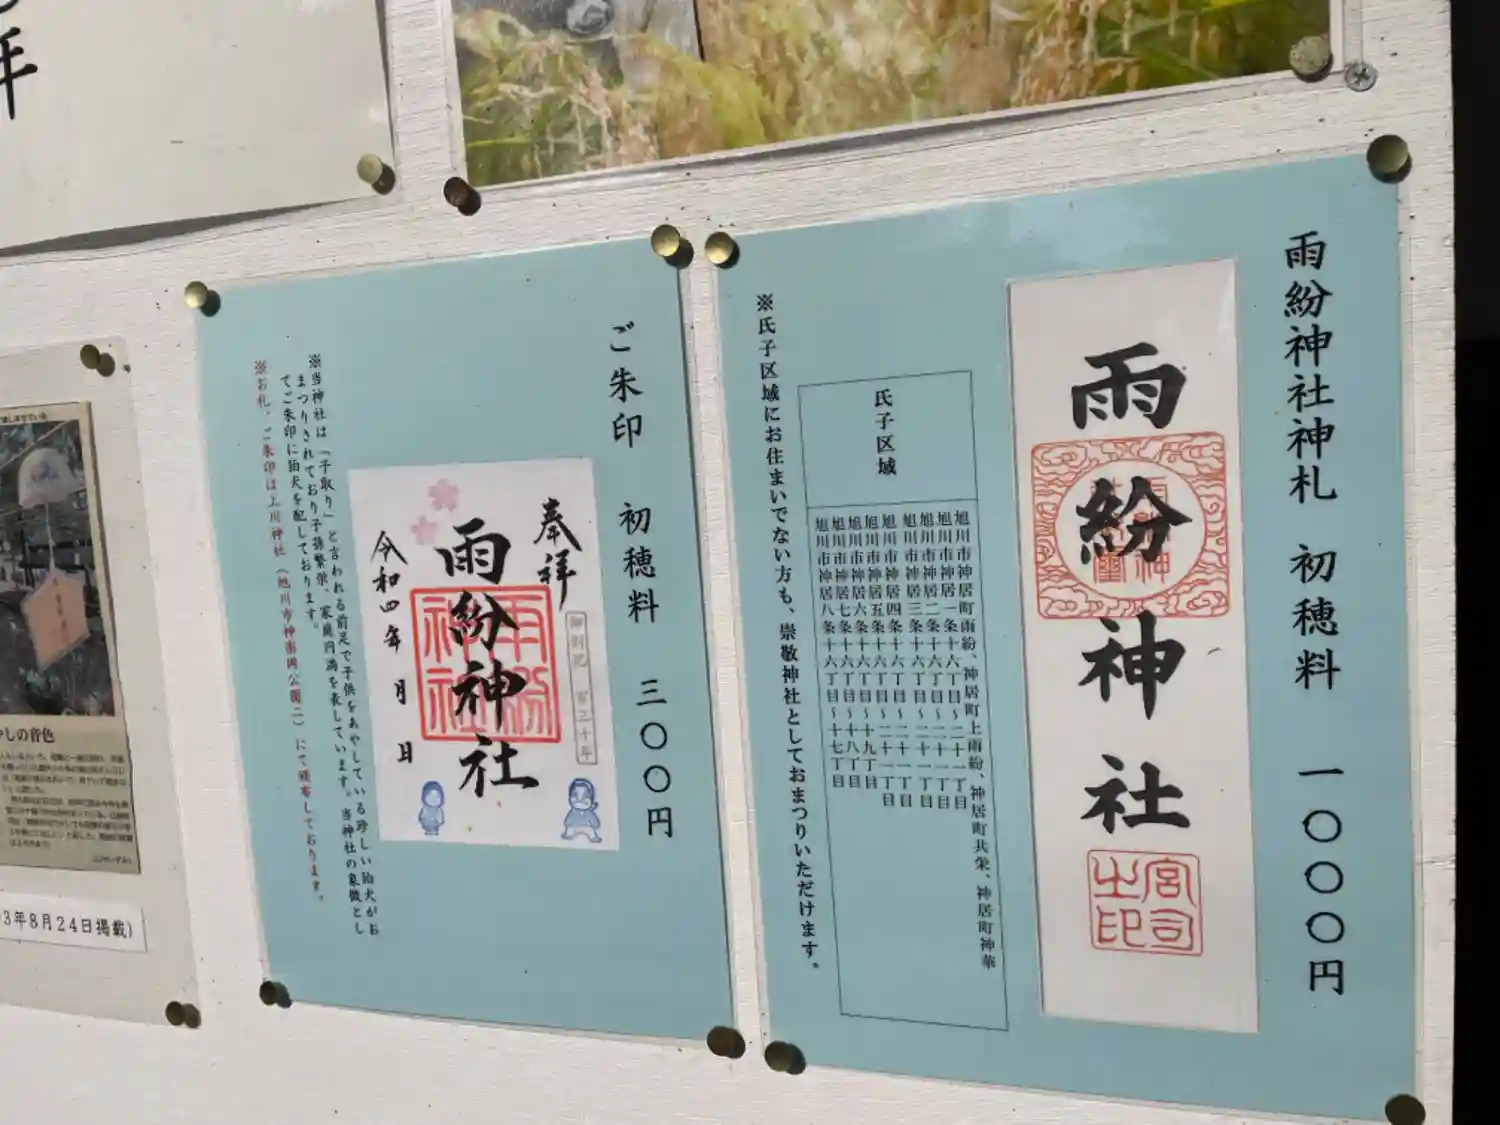 雨紛神社神札　初穂料　一〇〇〇円
雨紛神社
宮司之印
氏子区域
旭川市神居町雨紛、神居町上雨紛、神居町共栄、神居町神華
旭川市神居一条十六丁目～二十一丁目
旭川市神居二条十六丁目～二十一丁目
旭川市神居三条十六丁目～二十一丁目
旭川市神居四条十六丁目～二十一丁目
旭川市神居五条十六丁目～二十丁目
旭川市神居六条十六丁目～十九丁目
旭川市神居七条十六丁目～十八丁目
旭川市神居八条十六丁目～十七丁目
※氏子区域にお住まいでない方も、崇敬神社としておまつりいただけます。
ご朱印　初穂料　三〇〇円
奉祥
雨紛神社
雨紛神社
百三十年
令和四年　月　日
※当神社は「子取り」と言われる前足で子供をあやしている珍しい狛犬がお
まつりされており子孫繁栄、家庭円満を表しています。当神社の象徴とし
てご朱印に狛犬を配しております。
※お札、ご朱印は上川神社（旭川市神楽岡公園二）にて頒布しております。
年
しの音色
3年8月24日掲載）